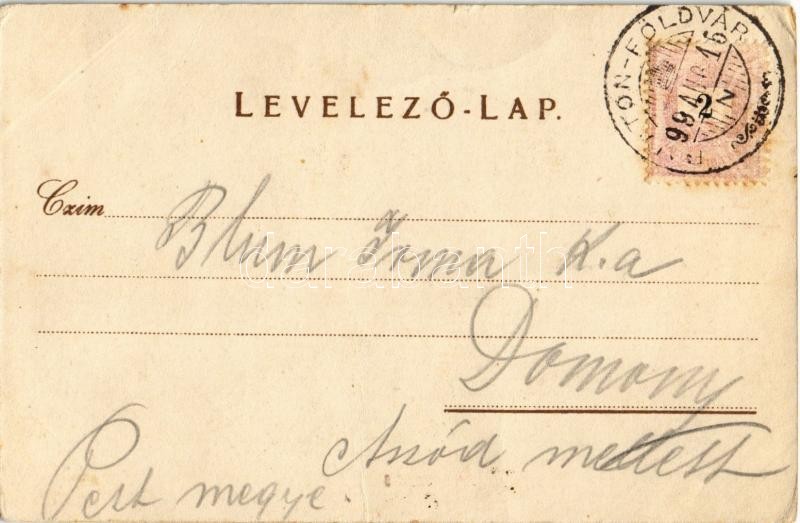 BALATON-FÖLDVÁR
99 AUG 16
N 2
LEVELEZŐ-LAP.
Czim
Blum Irma K.a
darabanth
Domony
Aszód mellett
Pest megye.